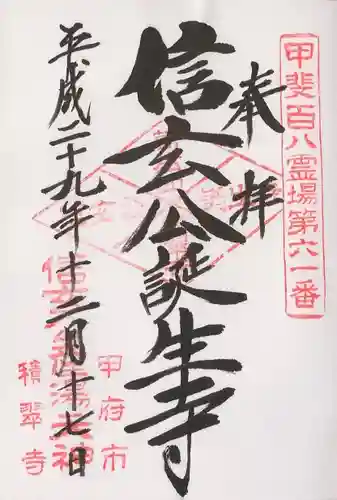 甲斐百八霊場第六一番
奉拝
信玄公誕生寺
平成二十九年十二月十七日
甲府市
積翠寺